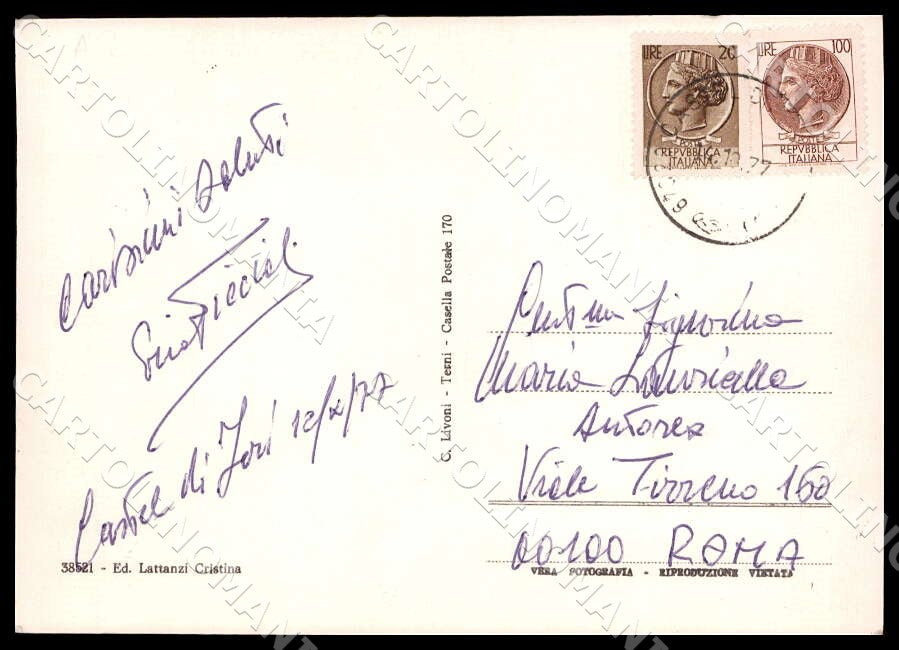 LIRE 20
REPVBBLICA
ITALIANA
LIRE 100
POSTE
REPVBBLICA
ITALIANA
77
Carissimi saluti
Castel di Tori 12/X/77
G. Livoni - Terni - Casella Postale 170
Gent.ma Signorina
Maria
Autorea
Viale Tirreno 160
00100 ROMA
38521 - Ed. Lattanzi Cristina
VERA FOTOGRAFIA - RIPRODUZIONE VIETATA
CARTOLINOMANIA